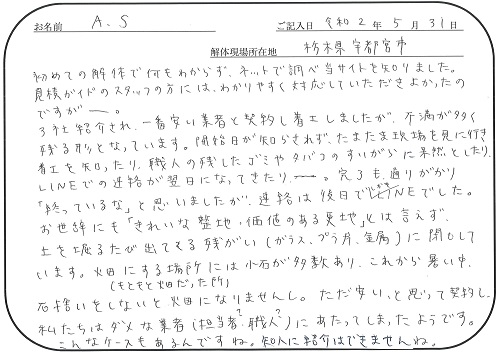 お名前 A.S ご記入日 令和2年5月31日
解体現場所在地 栃木県宇都宮市
初めての解体で何もわからず、ネットで調べ当サイトを知りました。
見積ガイドのスタッフの方には、わかりやすく対応していただきよかったの
ですが―。
3社紹介され、一番安い業者と契約し着工しましたが、不満が多く
残る形となっています。開始日が知らされず、たまたま現場を見に行き
着工を知ったり、職人の残したゴミやタバコのすいがらに呆然としたり、
LINEでの連絡が翌日になってきたり、―。完了も、通りがかり
「終っているな」と思いましたが、連絡は後日でLINEでした。
お世辞にも「きれいな整地・価値のある更地」とは言えず、
土を堀るたび出てくる残がい(ガラス、プラ片、金属)に閉口して
います。畑にする場所には小石が多数あり、これから暑い中、
(もともと畑だった所)
石拾いをしないと畑になりませんし。ただ安い、と思って契約し、
私たちはダメな業者(担当者?職人?)にあたってしまったようです。
こんなケースもあるんですね。知人に紹介はできませんね。